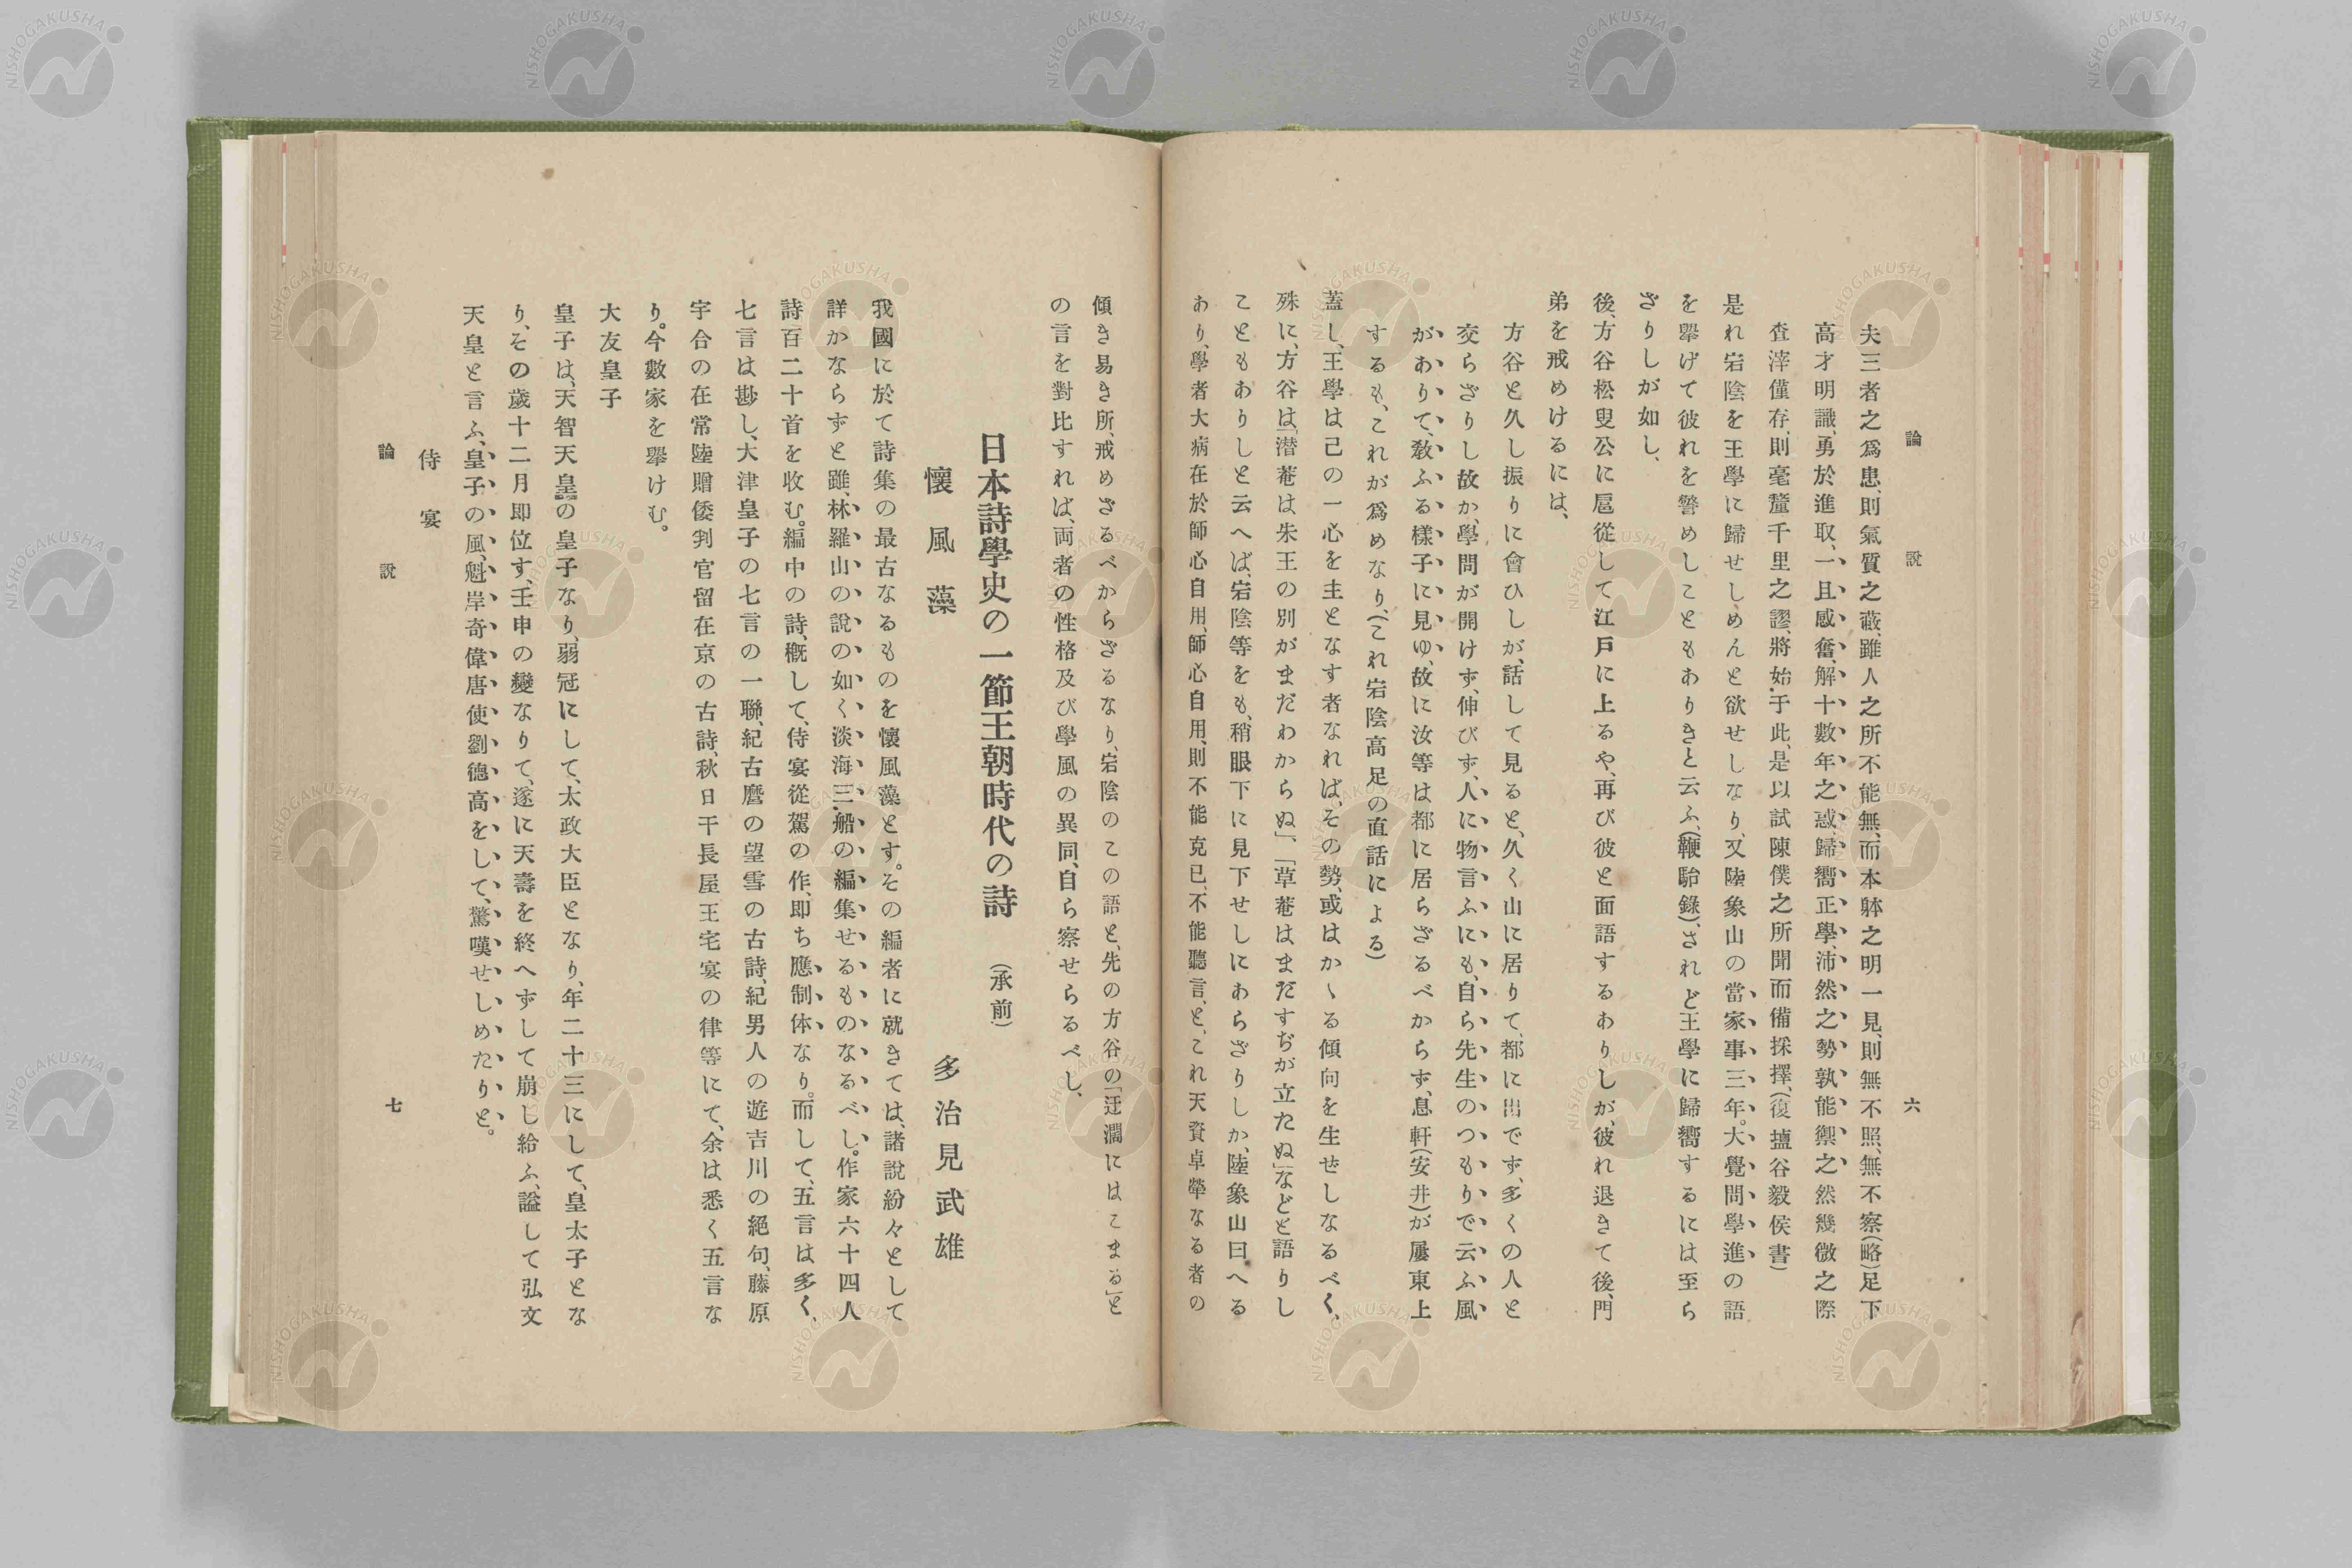 論説
六
夫三者之爲患、則氣質之蔽、雖人之所不能無、而本躰之明一見、則無不照、無不察(略)足下
高才明識、勇於進取、一旦感奮、解十數年之惑、歸嚮正學、沛然之勢孰能禦之、然幾微之際
査滓僅存、則毫釐千里之謬、將始于此、是以試陳僕之所聞而備採擇、(復塩谷毅侯書)
是れ宕陰を王學に歸せしめんと欲せしなり、又陸象山の當家事三年。大覺問學進の語
を擧げて彼れを警めしこともありきと云ふ、(鞭駘錄)、されど王學に歸嚮するには至ら
ざりしが如し、
後、方谷松叟公に扈從して江戸に上るや、再び彼と面語するありしが、彼れ退きて後、門
弟を戒めけるには、
方谷と久し振りに會ひしが、話して見ると、久く山に居りて、都に出でず、多くの人と
交らざりし故か、學問が開けず、伸びず、人に物言ふにも、自ら先生のつもりで云ふ風
がありて、敎ふる樣子に見ゆ、故に汝等は都に居らざるべからず、息軒(安井)が屢東上
するも、これが爲めなり、(これ宕陰高足の直話による)
蓋し、王學は己の一心を主となす者なれば、その勢、或はかゝる傾向を生ぜしなるべく、
殊に、方谷は「潜菴は朱王の別がまだわからぬ」、「草菴はまだすぢが立たぬ」などと語りし
こともありしと云へば、宕陰等をも、稍眼下に見下せしにあらざりしか、陸象山曰へる
あり、學者大病在於師心自用、師心自用、則不能克已、不能聽言、と、これ天資卓犖なる者の
傾き易き所、戒めざるべからざるなり、宕陰のこの語と、先の方谷の「迂濶にはこまる」と
の言を對比すれば、両者の性格及び學風の異同、自ら察せらるべし、
日本詩學史の一節王朝時代の詩 (承前)
懷風藻
多治見武雄
我國に於て詩集の最古なるものを懷風藻とす。その編者に就きては、諸說紛々として
詳かならずと雖、林羅山の說の如く淡海三船の編集せるものなるべし。作家六十四人
詩百二十首を收む。編中の詩、槪して、侍宴從駕の作、即ち應制体なり。而して、五言は多く、
七言は尠し、大津皇子の七言の一聯、紀古麿の望雪の古詩、紀男人の遊吉川の絕句、藤原
宇合の在常陸贈倭判官留在京の古詩、秋日于長屋王宅宴の律等にて、余は悉く五言な
り。今數家を擧けむ。
大友皇子
皇子は、天智天皇の皇子なり、弱冠にして、太政大臣となり、年二十三にして、皇太子とな
り、その歲十二月即位す、壬申の變なりて、遂に天壽を終へずして崩し給ふ、謚して弘文
天皇と言ふ、皇子の風、魁岸奇偉唐使劉德高をして、驚嘆せしめたりと。
侍宴
論説
七